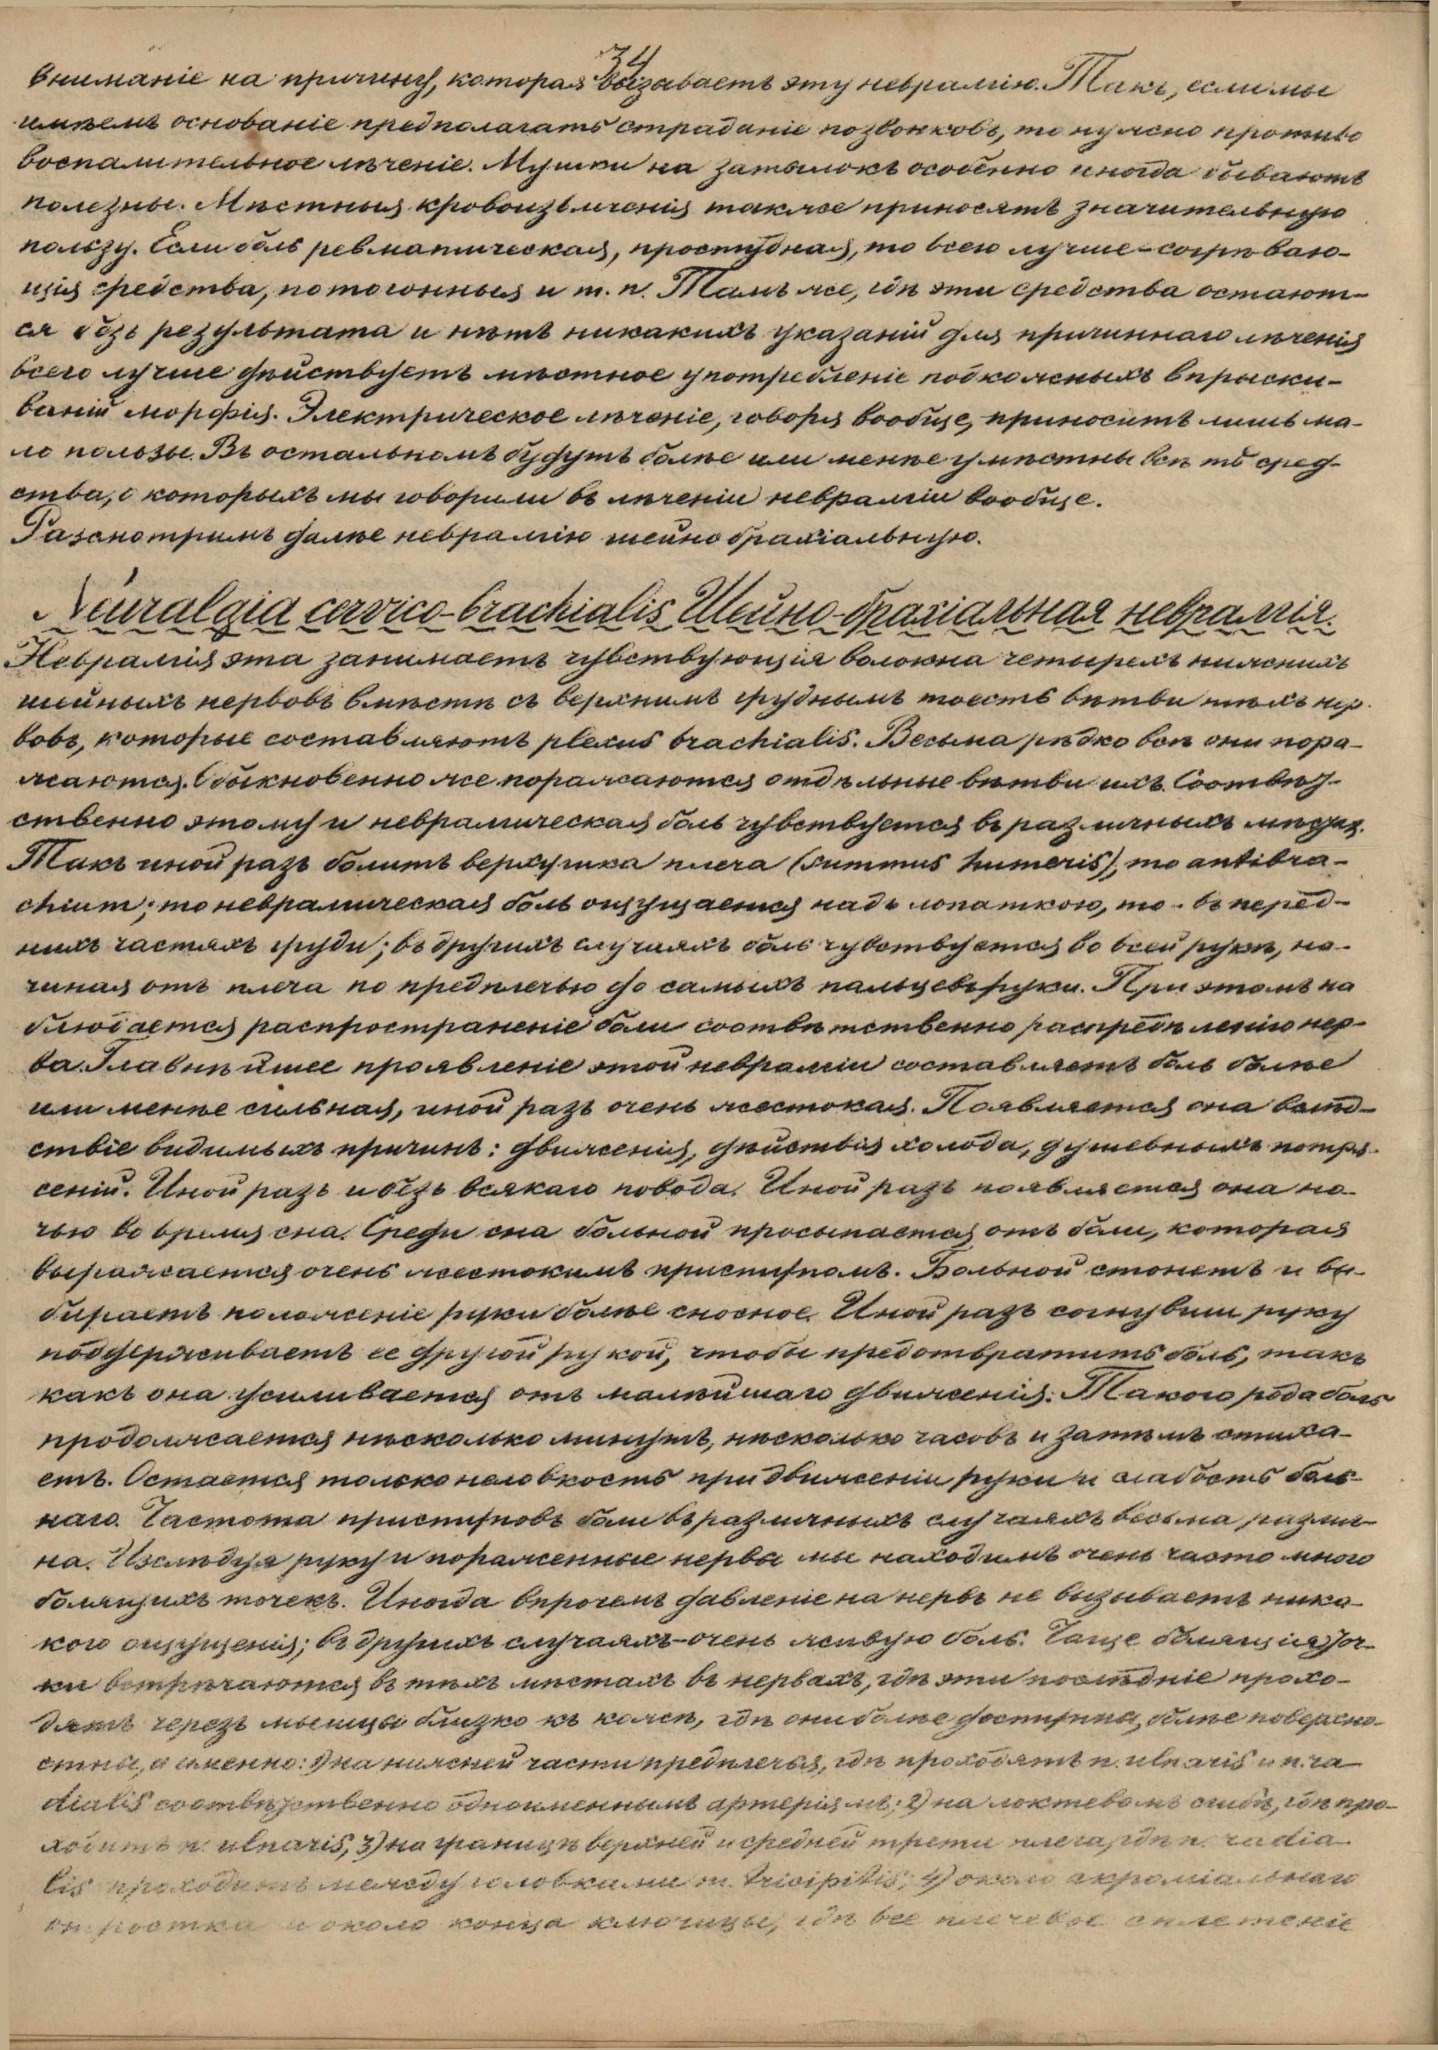 34
вниманіе на причину, которая вызаваетъ эту невралгію. Такъ, если мы
имѣемъ основаніе предполагать страданіе позвонковъ, то нужно противо
воспалительное лѣченіе. Мушки на затылокъ особенно иногда бываютъ
полезны. Мѣстныя кровоизвлеченія также приносятъ значительную
пользу. Если боль ревматическая, простудная, то всего лучше – согрѣваю-
щія средства, потогонныя и т. п. Тамъ же, гдѣ эти средства остают-
ся безъ результата и нѣтъ никакихъ указаній для причиннаго лѣченія
всего лучше дѣйствуетъ мѣстное употребленіе подкожныхъ впрыски-
ваній морфія. Электрическое лѣченіе, говоря вообще, приноситъ лишь ма-
ло пользы. Въ остальномъ будутъ болѣе или менѣе умѣстны всѣ тѣ сред-
ства, о которыхъ мы говорили въ лѣченіи невралгіи вообще.
Разсмотримъ далѣе невралгію шейно брахіальную.
Neuralgia cervico-brachialis Шейно-брахіальная невралгія.
Невралгія эта занимаетъ чувствующія волокна четырехъ нижнихъ
шейныхъ нервовъ вмѣстѣ съ верхнимъ груднымъ тоесть вѣтви тѣхъ нер-
вовъ, которые составляютъ plexus brachialis. Весьма рѣдко всѣ они пора-
жаются. Обыкновенно же поражаются отдѣльные вѣтви ихъ. Соотвѣт-
ственно этому и невралгическая боль чувствуется въ различныхъ мѣстах.
Такъ иной разъ болитъ верхушка плеча (summus humeris), то antibra-
chium; то невралгическая боль ощущается надъ лопаткою, то – въ перед-
нихъ частяхъ груди; въ другихъ случаяхъ боль чувствуется во всей рукѣ, на-
чиная отъ плеча по предплечью до самыхъ пальцевъ руки. При этомъ на
блюдается распространеніе боли соотвѣтственно распредѣленію нер-
ва. Главнѣйшее проявленіе этой невралгіи составляетъ боль болѣе
или менѣе сильная, иной разъ очень жестокая. Появляется она вслѣд-
ствіе видимыхъ причинъ: движенія, дѣйствія холода, душевныхъ потря-
сеній. Иной разъ и безъ всякаго повода. Иной разъ появляется она но-
чью во время сна. Среди сна больной просыпается отъ боли, которая
выражается очень жестокимъ приступомъ. Больной стонетъ и вы-
бираетъ положеніе руки болѣе сносное. Иной разъ согнувши руку
поддерживаетъ ее другой рукой, чтобы предотвратить боль, такъ
какъ она усиливается отъ малѣйшаго движенія. Такого рода боль
продолжается нѣсколько минутъ, нѣсколько часовъ и затѣмъ стиха-
етъ. Остается только неловкость при движеніи руки и слабость боль-
наго. Частота приступовъ боли въ различныхъ случаяхъ весьма различ-
на. Изслѣдуя руку и пораженные нервы мы находимъ очень часто много
болящихъ точекъ. Иногда впрочемъ давленіе на нервъ не вызываетъ ника-
кого ощущенія; въ другихъ случаяхъ – очень живую боль. Чаще болящія точ-
ки встрѣчаются въ тѣхъ мѣстахъ въ нервахъ, гдѣ эти послѣдніе прохо-
дятъ черезъ мышцы близко къ кожѣ, гдѣ они болѣе доступны, болѣе поверхно-
стны, а именно: 1) на нижней части предплечья, гдѣ проходятъ n. ulnaris и n. ra
dialis соотвѣтственно одноименнымъ артеріямъ; 2) на локтевомъ сгибѣ, гдѣ про-
ходитъ n. ulnaris, 3) на границѣ верхней и средней трети плеча, гдѣ n. radia
lis проходитъ между головками m. tricipitis; 4) около акроміальнаго
отростка и около конца ключицы, гдѣ все плечевое сплетеніе